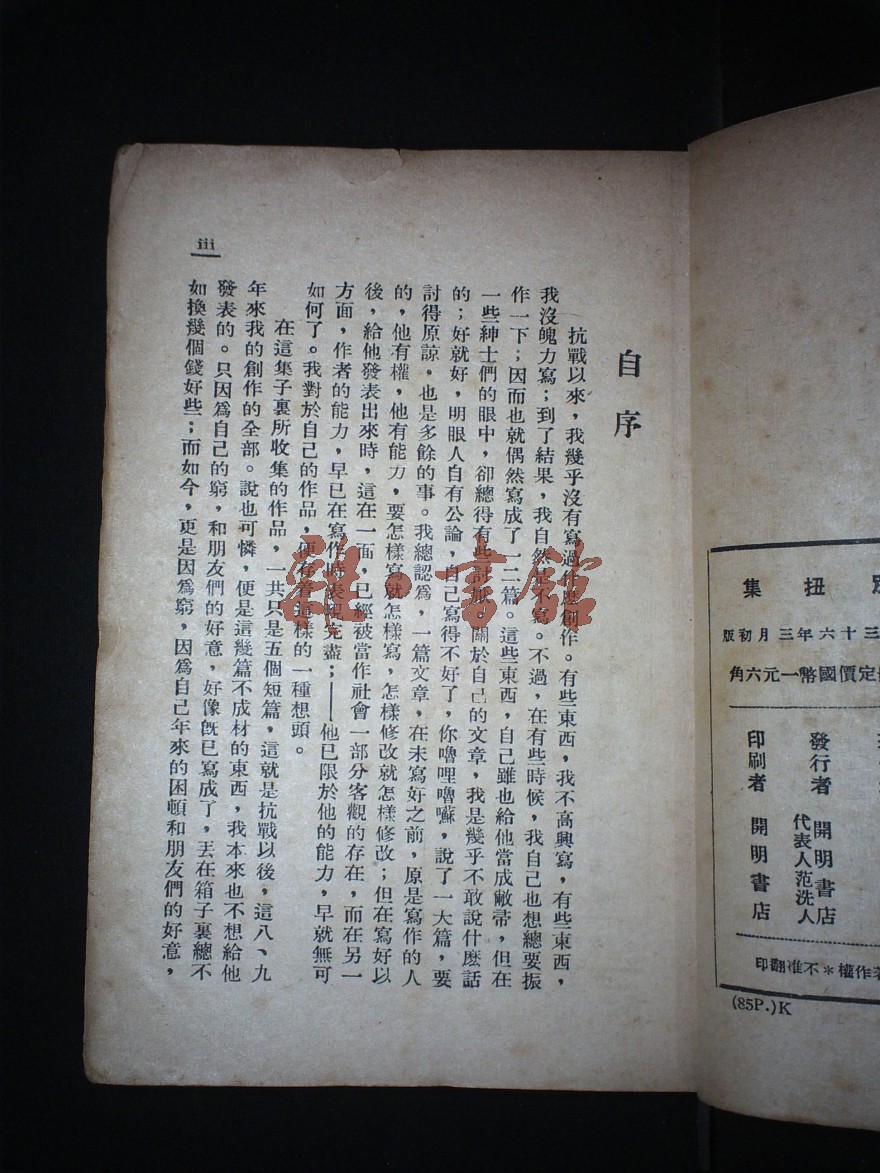 自序
抗戰以來，我幾乎沒有寫過什麽創作。有些東西，我不高興寫，有些東西，
我沒魄力寫；到了結果，我自然是不寫。不過，在有些時候，我自己也想總要振
作一下；因而也就偶然寫成了一二篇。這些東西，自己雖也給他當成敝帚，但在
一些紳士們的眼中，卻總得有些討厭。關於自己的文章，我是幾乎不敢說什麽話
的；好就好，明眼人自有公論，自己寫得不好了，你嚕哩嚕囌，說了一大篇，要
討得原諒，也是多餘的事。我總認爲，一篇文章，在未寫好之前，原是寫作的人
的，他有權，他有能力，要怎樣寫就怎樣寫，怎樣修改就怎樣修改；但在寫好以
後，給他發表出來時，這在一面，已經被當作社會一部分客觀的存在，而在另一
方面，作者的能力，早已在寫作時表現完盡；——他已限於他的能力，早就無可
如何了。我對於自己的作品，便存着這樣的一種想頭。
在這集子裏所收集的作品，一共只是五個短篇，這就是抗戰以後，這八、九
年來我的創作的全部。說也可憐，便是這幾篇不成材的東西，我本來也不想給他
發表的。只因爲自己的窮，和朋友們的好意，好像旣已寫成了，丟在箱子裏總不
如換幾個錢好些；而如今，更是因爲窮，因爲自己年來的困頓和朋友們的好意，
iii
扭集
三十六年三月初版
定價國幣一元六角
發行者 開明書店
代表人范洗人
印刷者 開明書店
著作權＊不准翻印
(85P.)K
書館